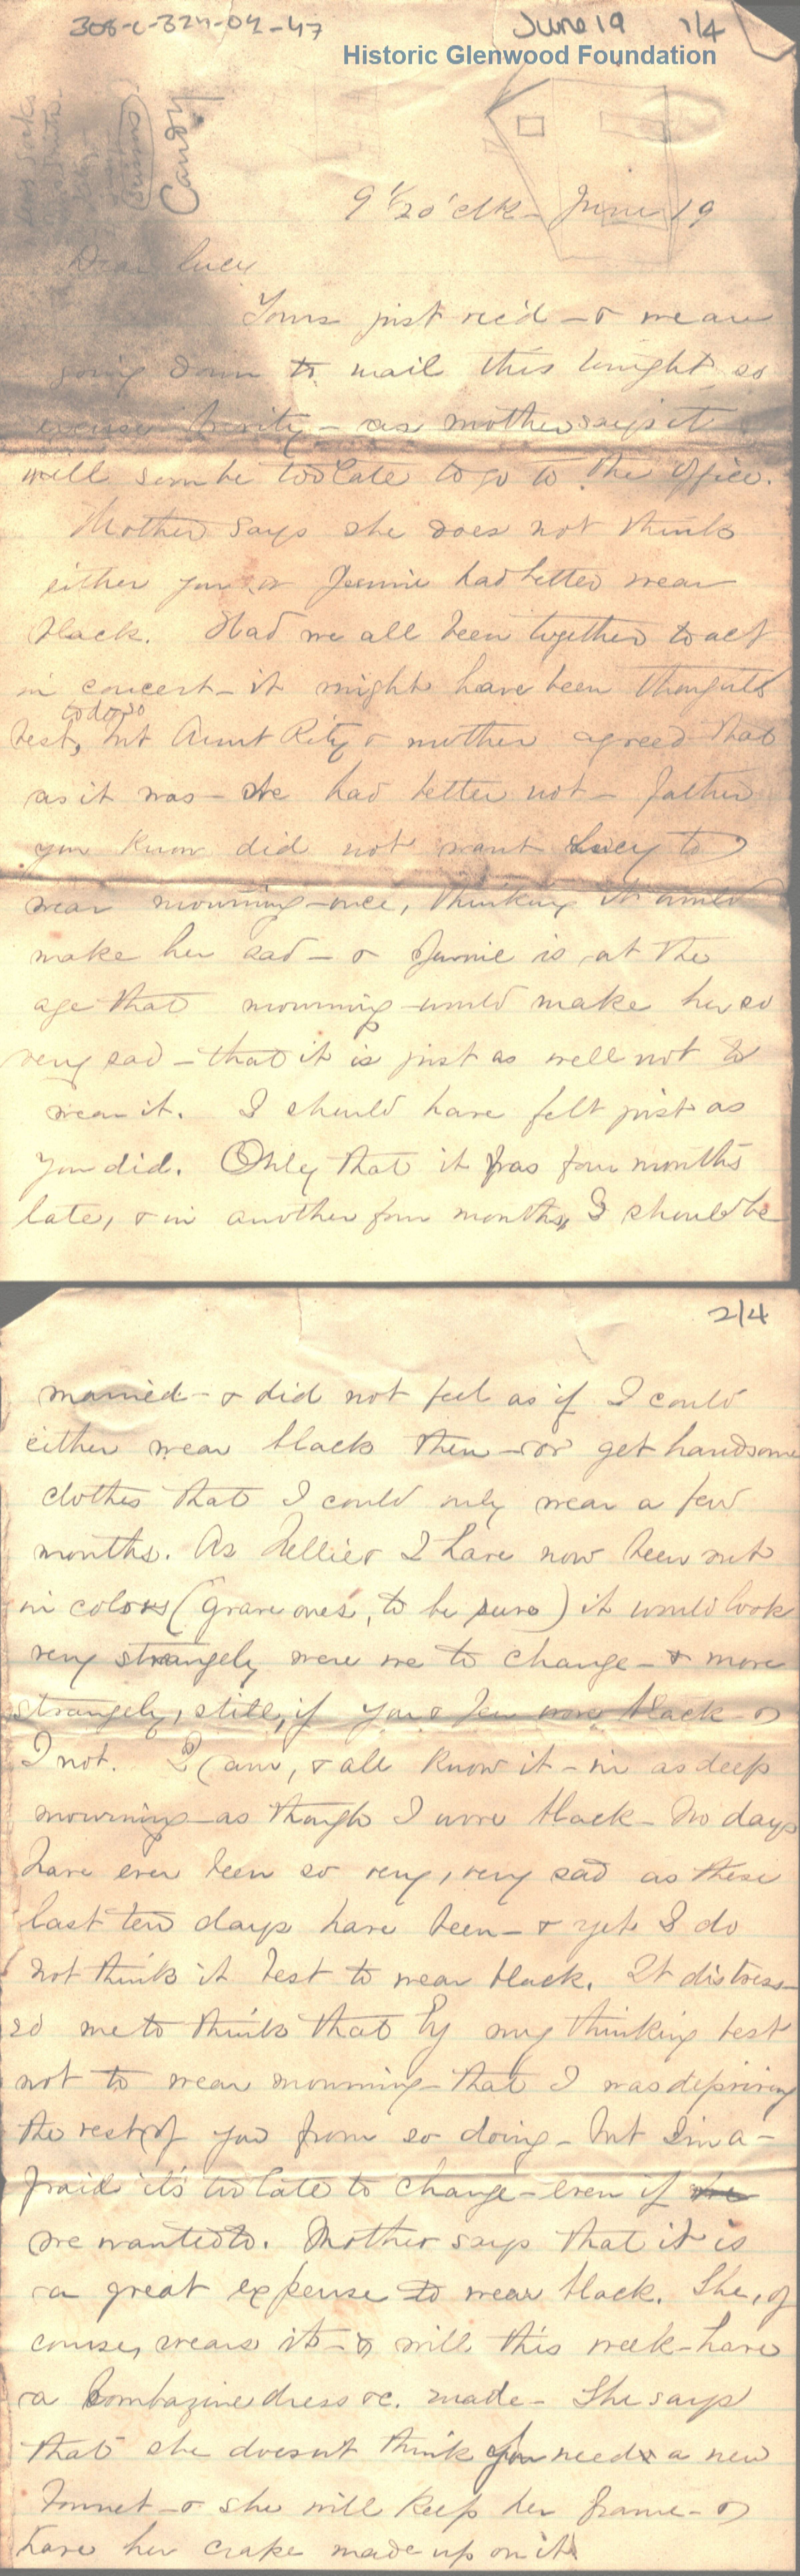 308-L-324-04-47 June 19 1/4
Historic Glenwood Foundation
Candy
9 1/2 o'clk - June 19
Dear Lucy
Yours just rec'd - & we are
going down to mail this tonight so
excuse brevity - as mother says it
will soon be too late to go to the office.
Mother says she does not think
either you or Jennie had better wear
black. Had we all been together to act
in concert - it might have been thought
to do so
best, but Aunt Rity & mother agreed that
as it was - We had better not - father
you know did not want Lucy to
wear mourning - once, thinking it would
make her sad - & Jennie is at the
age that mourning would make her so
very sad - that it is just as well not to
wear it. I should have felt just as
you did. Only that it was four months
late, & in another four months, I should be
2/4
married - & did not feel as if I could
either wear black then - or get handsome
clothes that I could only wear a few
months. As Nellie & I have now been out
in colors (grave ones, to be sure) it would look
very strangely were we to change - & more
strangely, still, if you & Jen wore black - &
I not. I am, & all know it - in as deep
mourning - as though I wore black - No days
have ever been so very, very sad as these
last ten days have been - & yet I do
not think it best to wear black. It distress-
ed me to think that by my thinking best
not to wear mourning - that I was depriving
the rest of you from so doing - but I'm a-
fraid it's too late to change - even if
we wanted to. Mother says that it is
a great expense to wear black. She, of
course, wears it - & will this week - have
a bombazine dress &c. made - She says
that she doesn't think you need a new
bonnet - & she will keep her frame - &
have her crape made up on it.